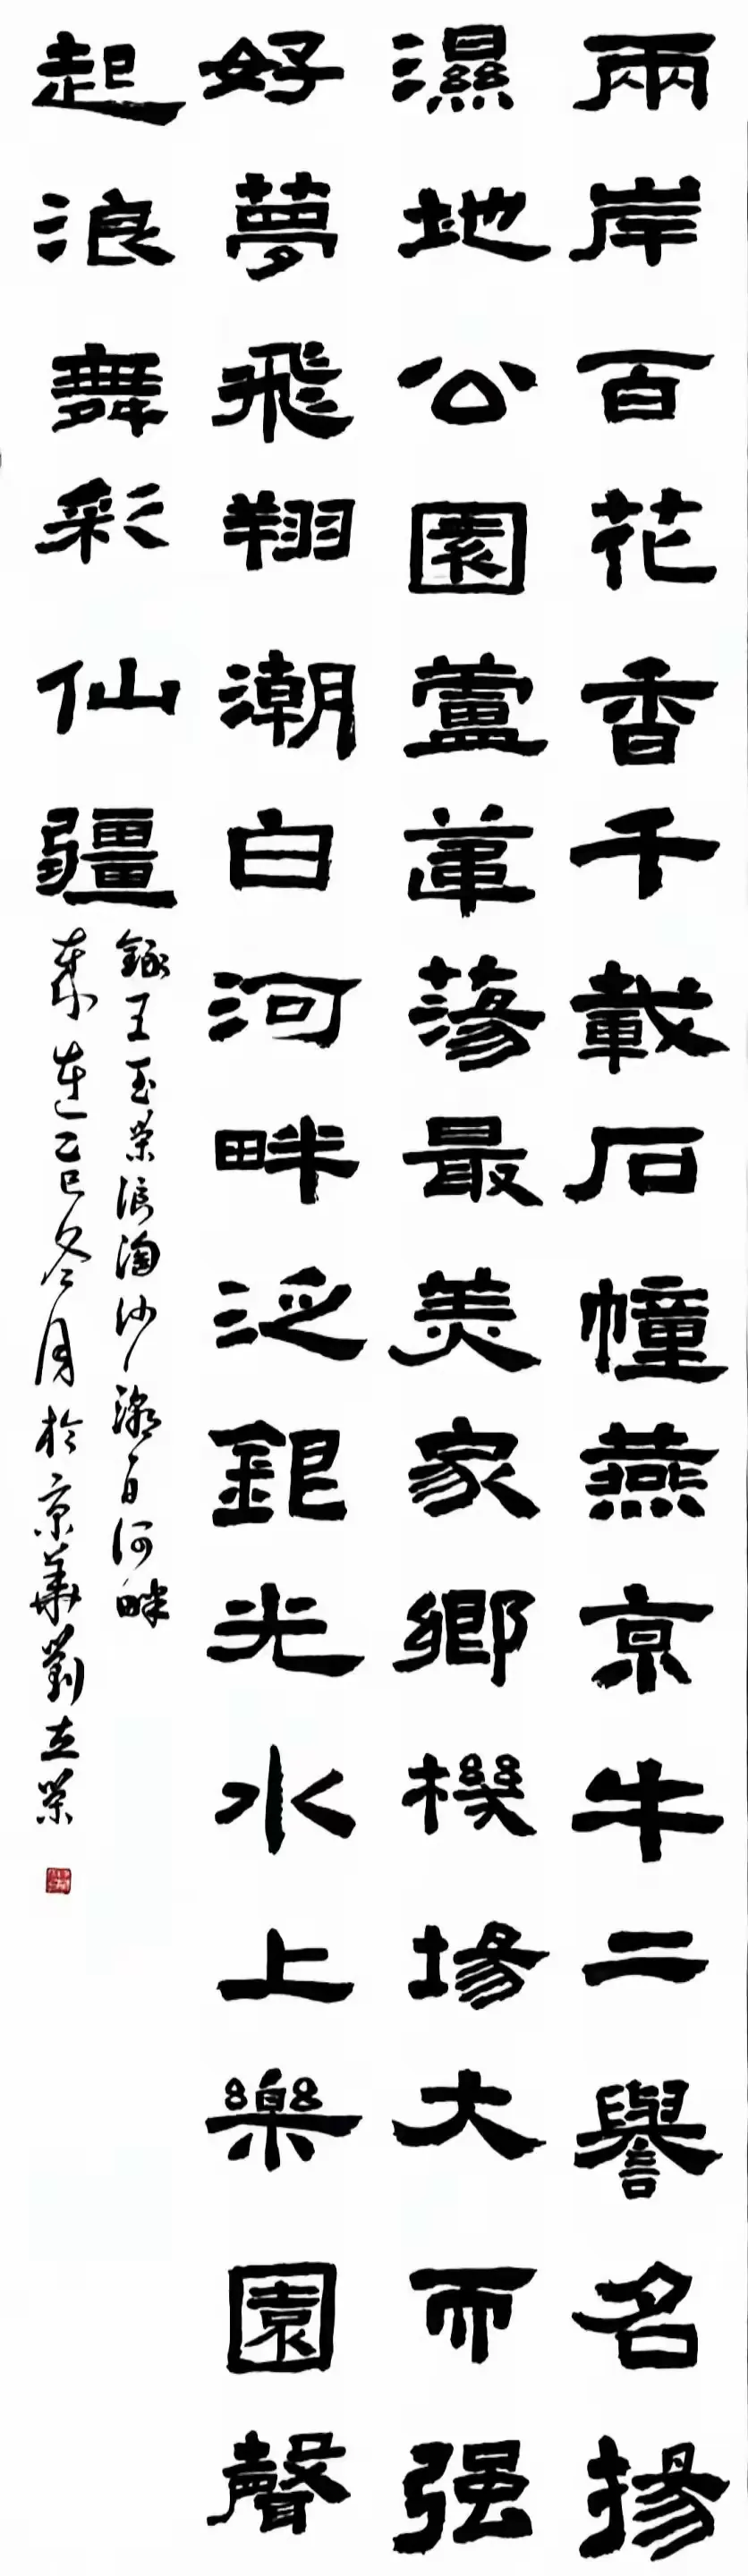 兩岸百花香千載石幢燕京牛二譽名揚
濕地公園蘆葦蕩最美家鄉機場大而强
好夢飛翔潮白河畔泛銀光水上樂園聲
起浪舞彩仙疆
錄王玉榮浪淘沙潮白河畔
乙巳冬月於京華劉立榮